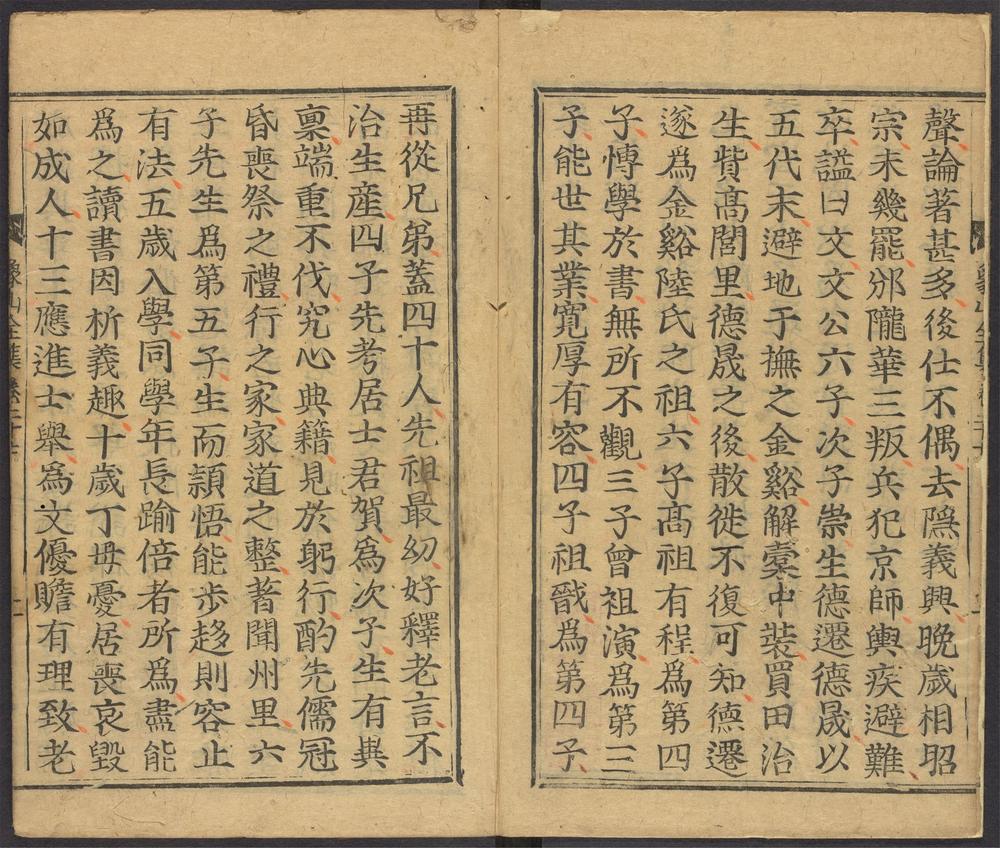 聲論著甚多後仕不偶去隱義興晚歲相昭
宗未幾罷邠隴華三叛兵犯京師輿疾避難
卒謚曰文文公六子次子崇生德遷德晟以
五代末避地于撫之金谿解橐中裝買田治
生貲髙閭里德晟之後散徙不復可知德遷
遂爲金谿陸氏之祖六子髙祖有程爲第四
子愽學於書無所不觀三子曾祖演爲第三
子能世其業寛厚有容四子祖戩爲第四子
再從兄弟蓋四十人先祖最幼好釋老言不
治生産四子先考居士君賀爲次子生有異
稟端重不伐究心典籍見於躬行酌先儒冠
昏喪祭之禮行之家家道之整著聞州里六
子先生爲第五子生而頴悟能步趍則容止
有法五歲入學同學年長踰倍者所爲盡能
爲之讀書因析義趣十歲丁母憂居喪哀毀
如成人十三應進士舉爲文優贍有理致老
象山全集卷二十七